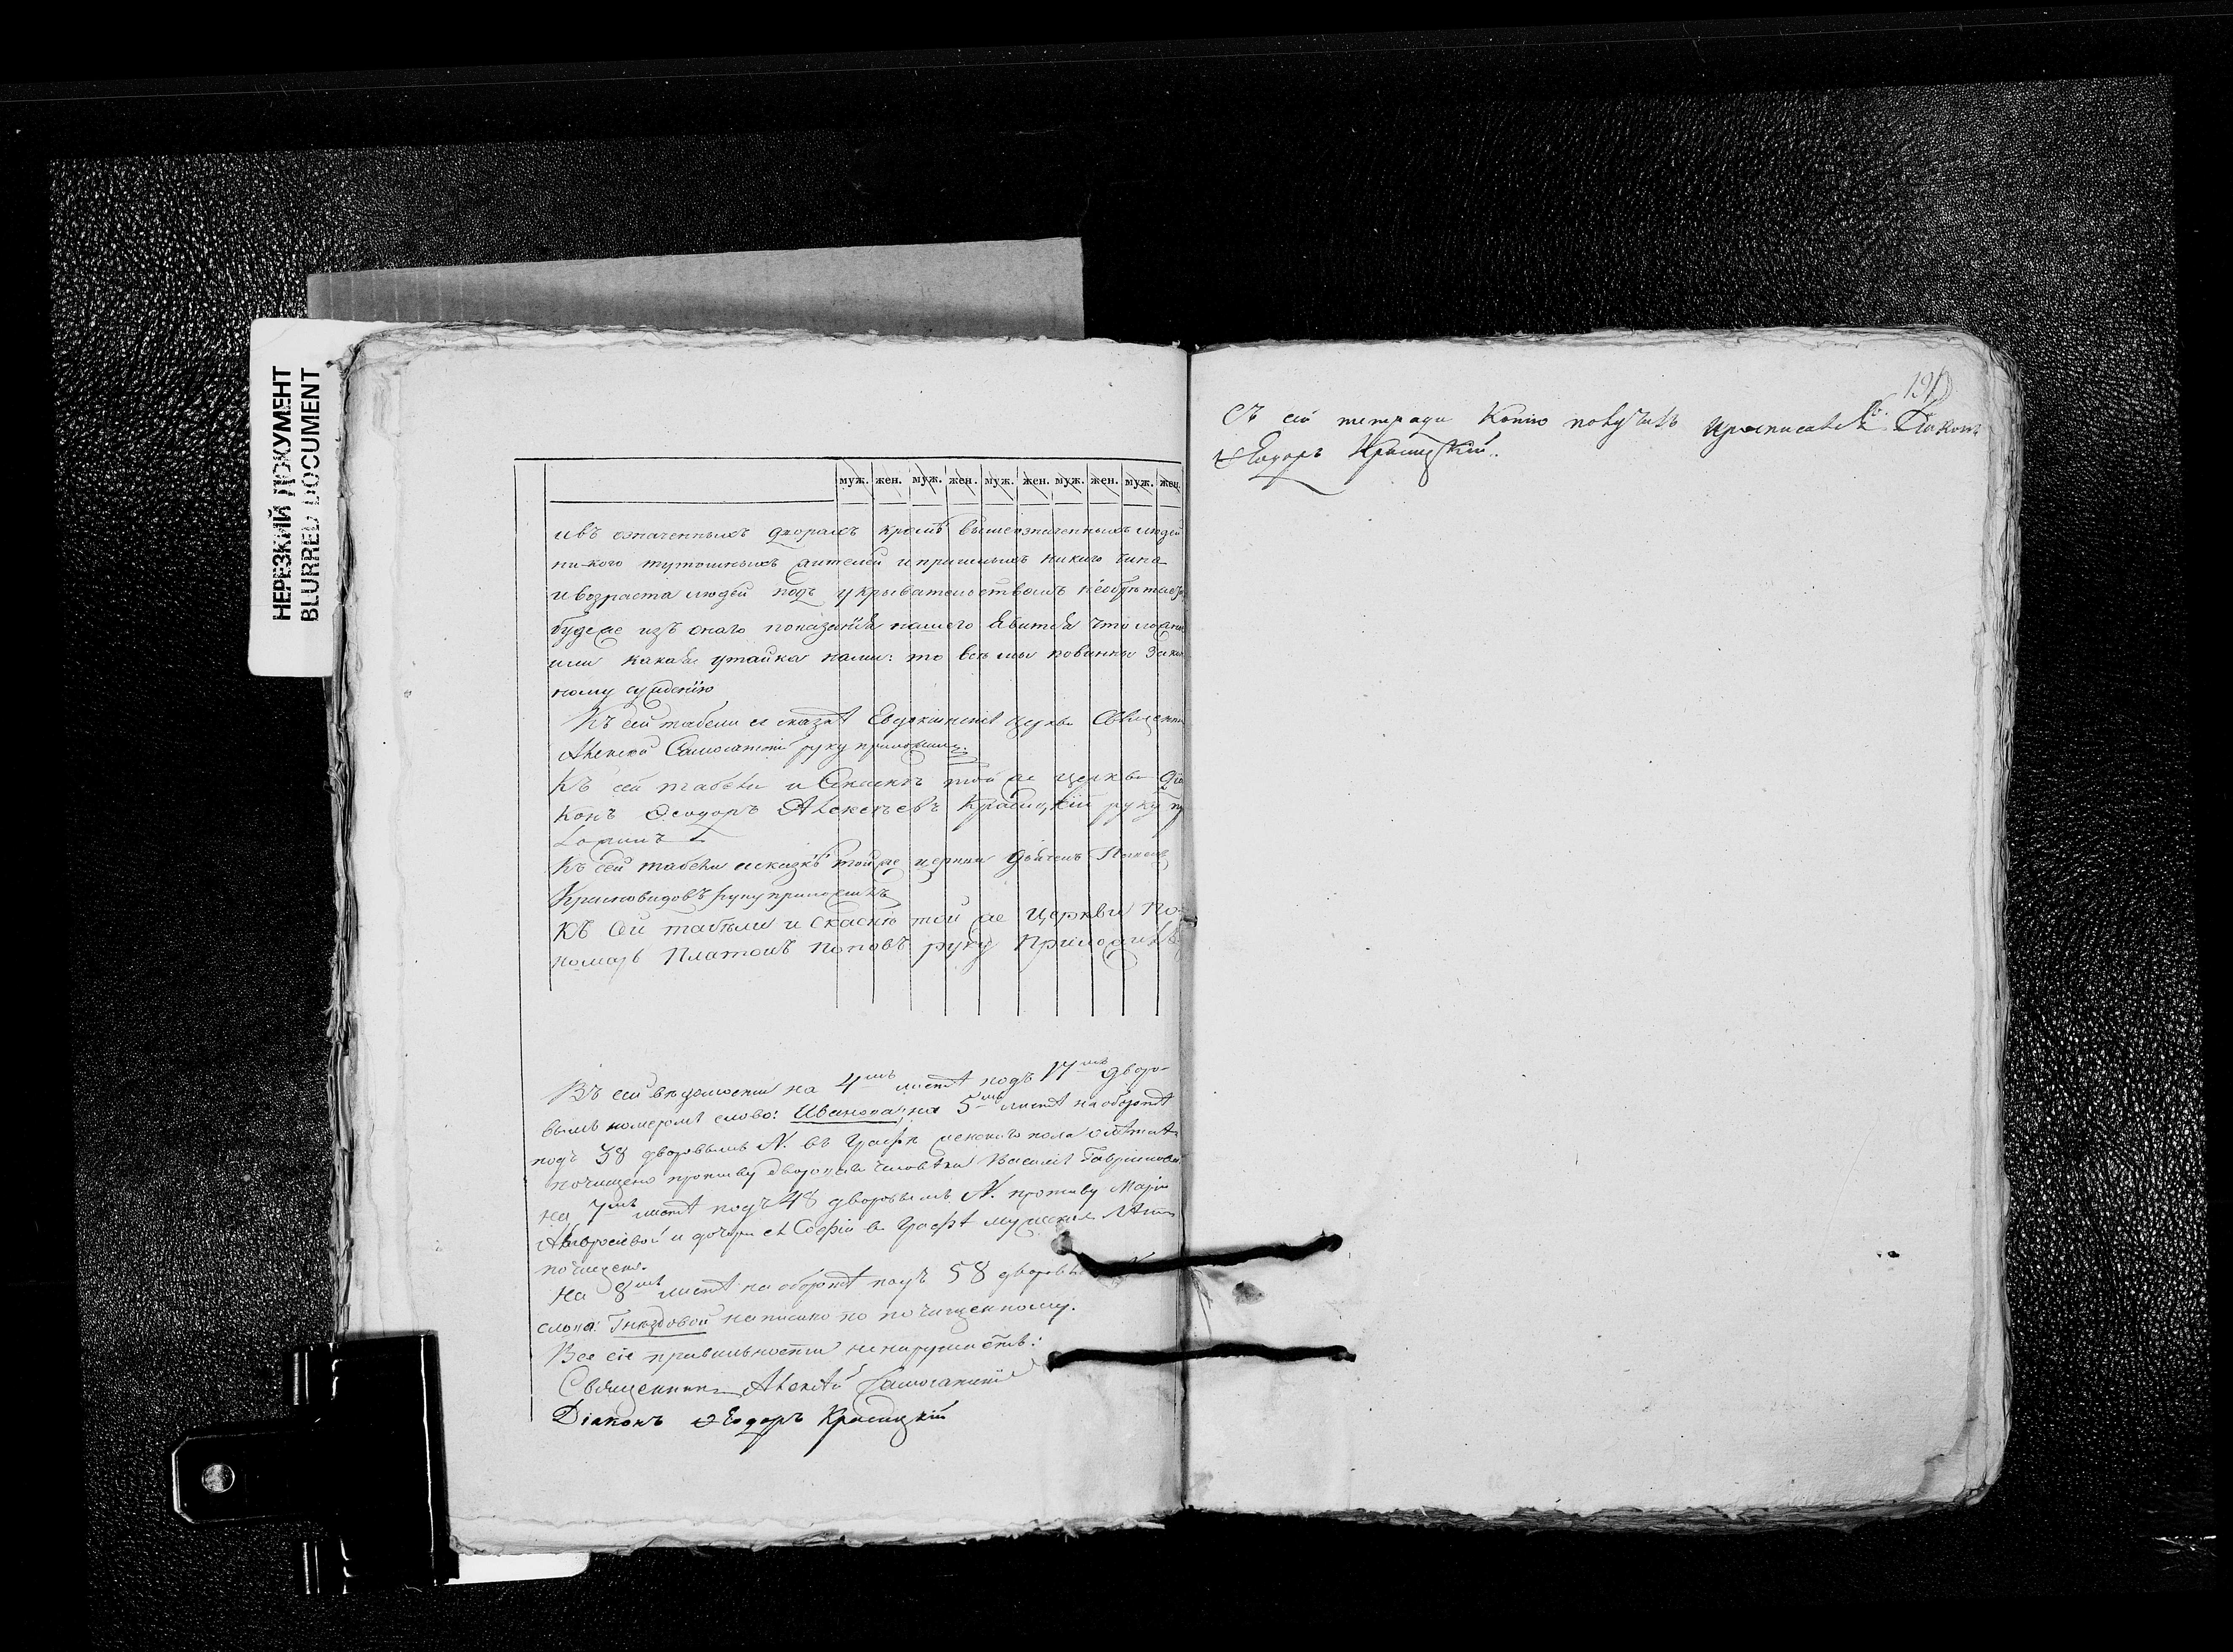 НЕРЕЗКИЙ ДОКУМЕНТ
BLURRED DOCUMENT
муж. жен. муж. жен. муж. жен. муж. жен. муж. жен.
ивъ означенныхъ дворахъ кромѣ вышеозначенныхъ людей
ни-кого тутошныхъ жителей и пришлыхъ никого чина
и возраста людей подъ укрывательствомъ
буде же изъ онаго показанія нашего явится что
или какая утайка нами: то всѣ мы повинны
ному сужденію
Къ сей табели и сказкѣ церкви
Алексей руку приложилъ.
Къ сей табели и Скаскѣ той же церкви Діа
конъ Ѳеодоръ Алексѣевъ Красицкій руку п
ложилъ
Къ сей табели и сказкѣ той же церкви дьячекъ
Красновидовъ руку приложилъ
Къ сей табѣли и скаскѣ той же Церкви По-
номарь Платонъ Поповъ руку Приложилъ
Въ сей вѣдомости на 4мъ листѣ подъ 17мъ дворо-
вымъ номеромъ слово: Иванова; на 5мъ листѣ на оборотѣ
подъ 38 дворовымъ N. въ графѣ женского пола
почищено противу Василія
на 7мъ листѣ подъ 48 дворовымъ N. противу Маріи
и дочери ея Софіи въ графѣ лѣта
почищено.
На 8мъ листѣ на оборотѣ подъ 58
слово: Гнѣздовой написано по почищенному.
Все сіе правильности
Священникъ Алексѣй
Діаконъ Ѳеодоръ Красицкій
Съ сей тетради Копію получилъ Діаконъ
Ѳеодоръ Красицкій.